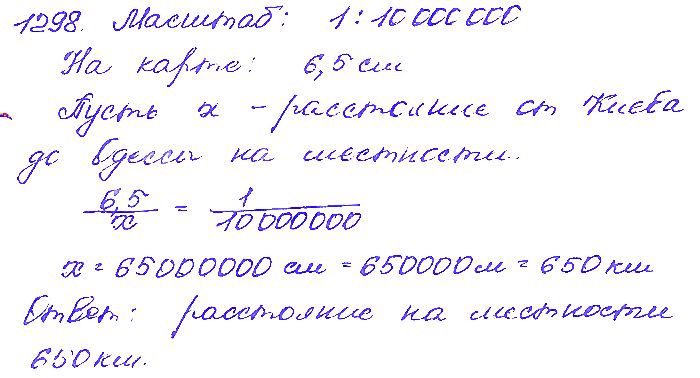 1298. Масштаб: 1:10 000 000
На карте: 6,5 см
Пусть x - расстояние от Киева
до Одессы на местности.
6,5/x = 1/10 000 000
x = 65000000 см = 650000 м = 650 км
Ответ: расстояние на местности
650 км.